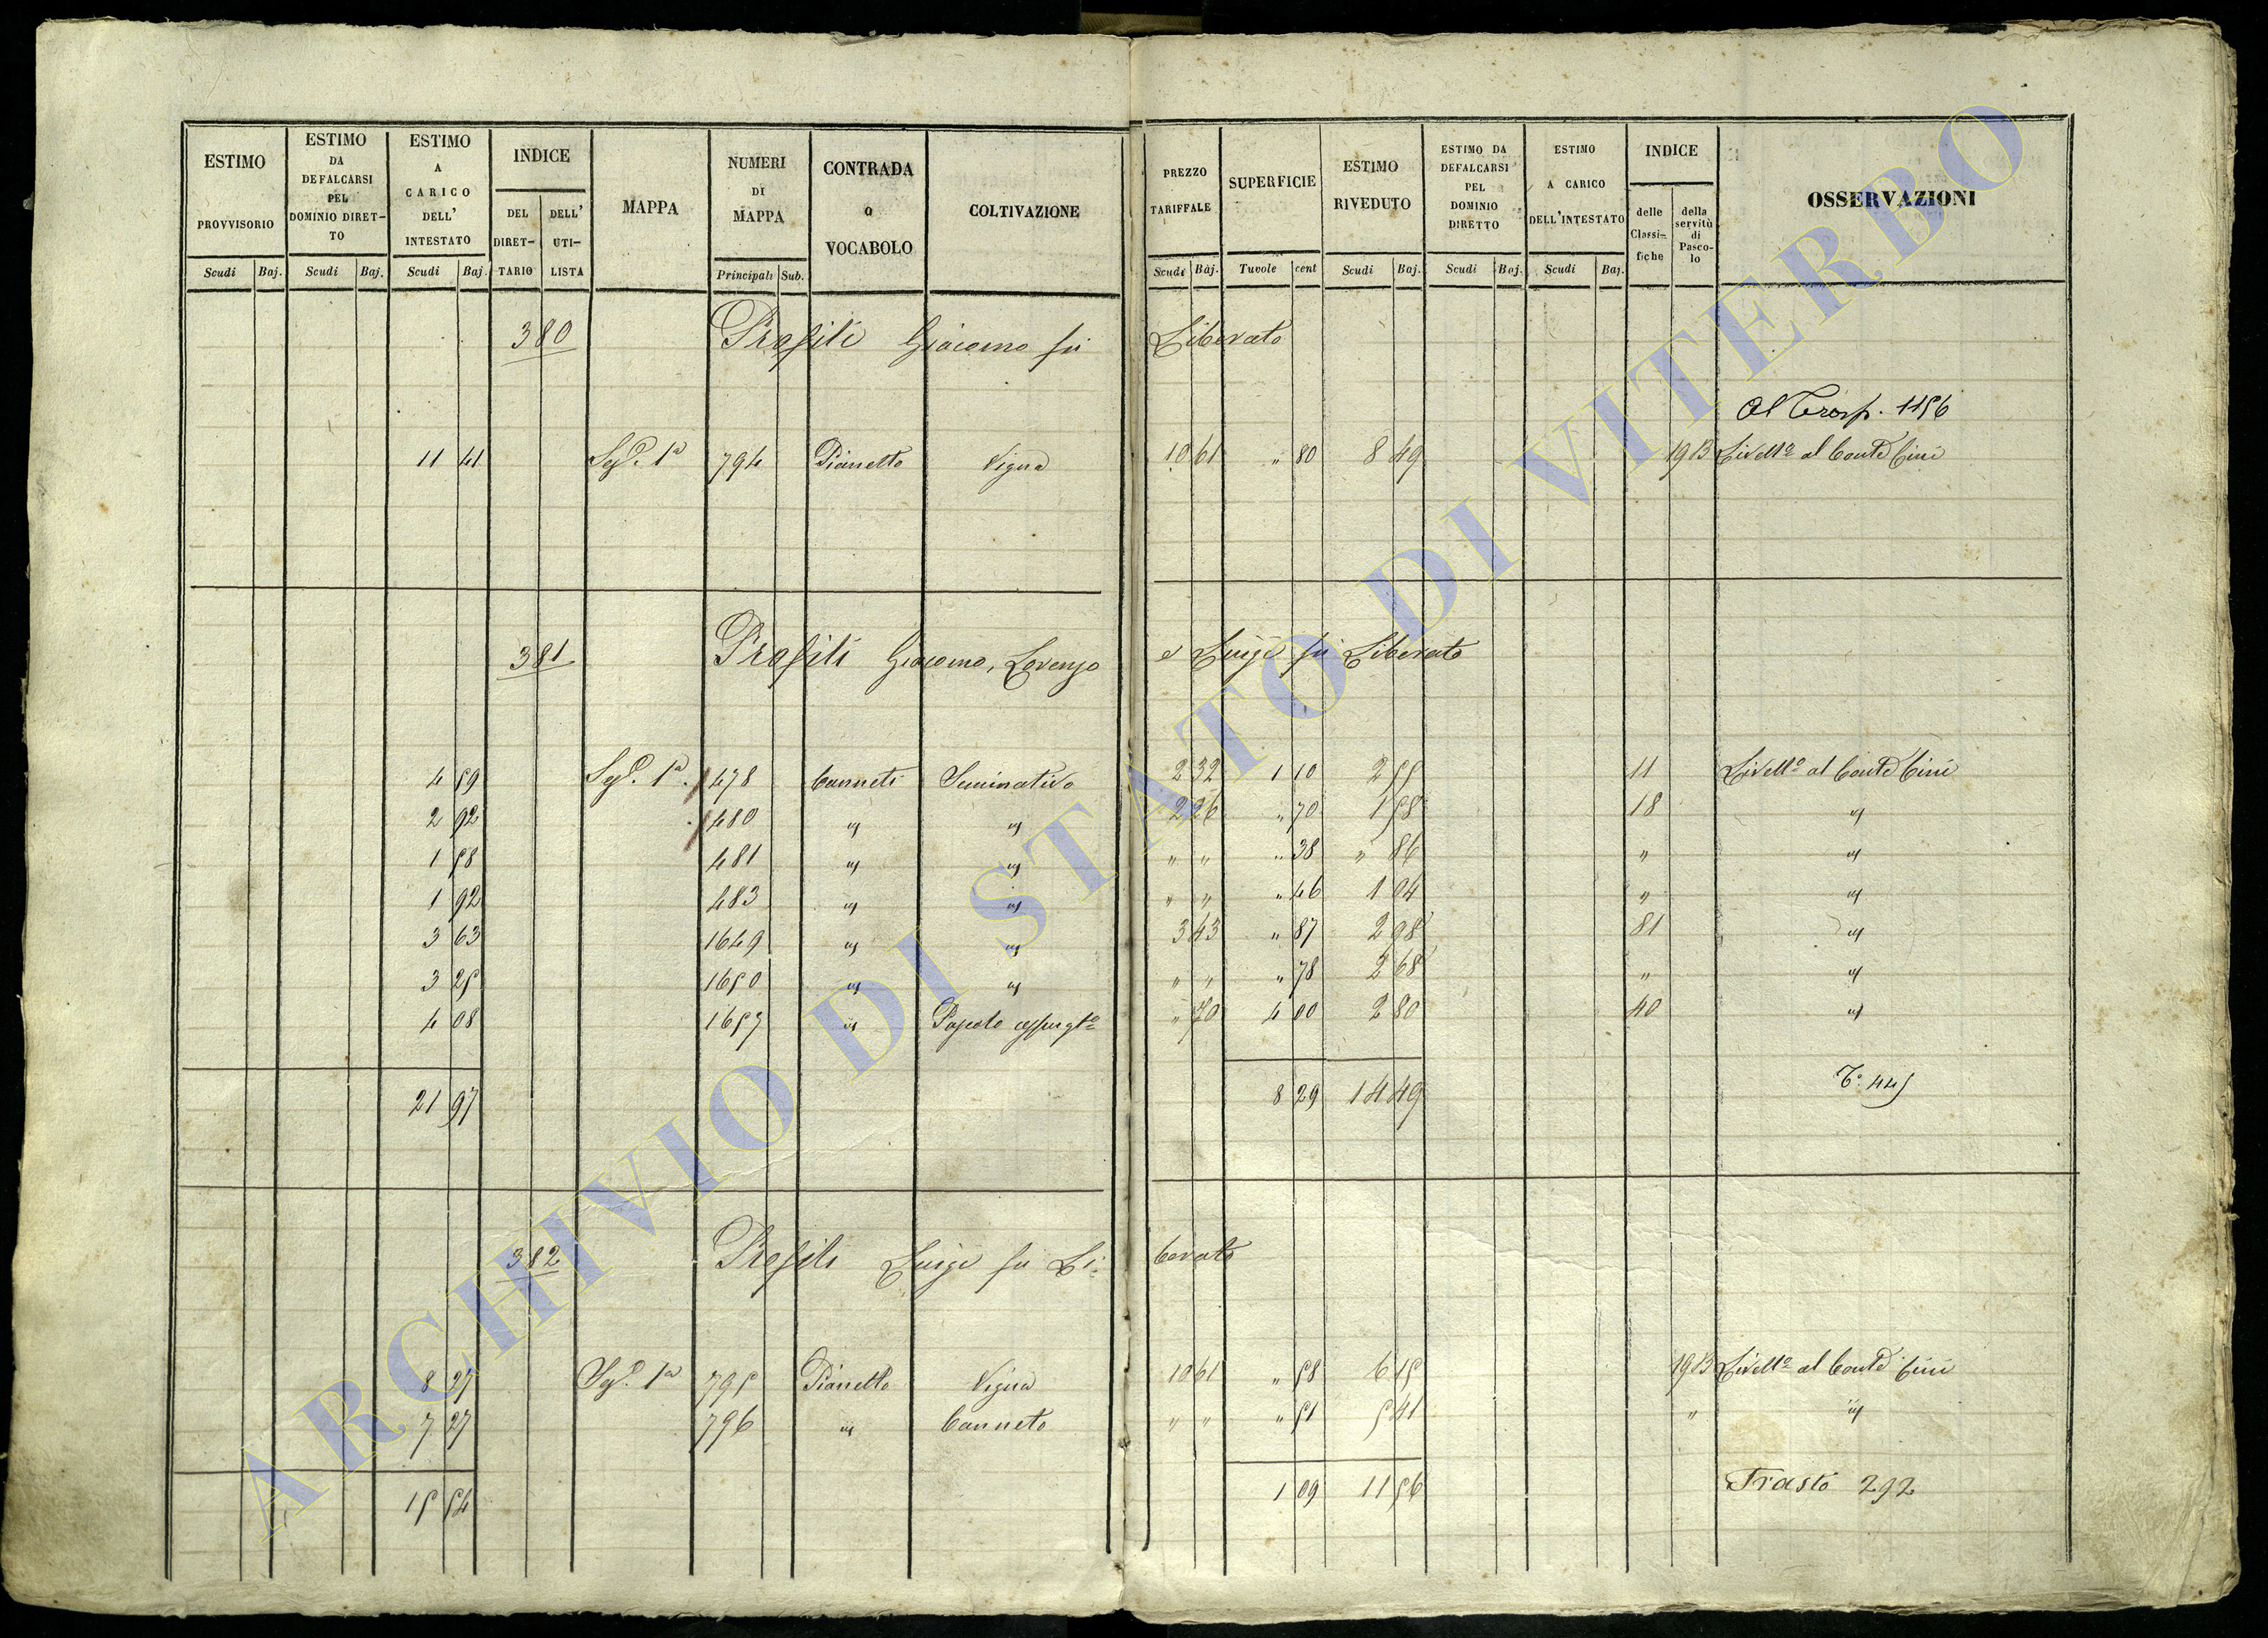 ESTIMO PROVVISORIO Scudi Baj.
ESTIMO DA DEFALCARSI PEL DOMINIO DIRET-TO Scudi Baj.
ESTIMO A CARICO DELL' INTESTATO Scudi Baj.
INDICE DEL DIRET-TARIO DELL' UTI-LISTA
MAPPA
NUMERI DI MAPPA Principali Sub.
CONTRADA o VOCABOLO
COLTIVAZIONE
PREZZO TARIFFALE Scudi Baj.
SUPERFICIE Tavole cent
ESTIMO RIVEDUTO Scudi Baj.
ESTIMO DA DEFALCARSI PEL DOMINIO DIRETTO Scudi Baj.
ESTIMO A CARICO DELL'INTESTATO Scudi Baj.
INDICE delle Classi-fiche della servitù di Pasco-lo
OSSERVAZIONI
380 Profili Giacomo fu Liberato
Al Trasp. 1156
11 41 Sez.e 1a 794 Pianetto Vigna 10 61 " 80 8 49 19 B Livell.o al Conte Cini
381 Profili Giacomo, Lorenzo e Luigi fu Liberato
4 59 Sez.e 1a 478 Canneti Seminativo 2 32 1 10 2 55 11 Livell.o al Conte Cini
2 92 480 " " 2 26 " 70 1 58 18 "
1 58 481 " " " " " 38 " 86 " "
1 92 483 " " " " " 46 1 04 " "
3 63 1649 " " 3 43 " 87 2 98 81 "
3 25 1650 " " " " " 78 2 68 " "
4 08 1657 " Pascolo " 70 4 00 2 80 40 "
21 97 8 29 14 49
T.o 445
382 Profili Luigi fu Li-berato
8 27 Sez.e 1a 795 Pianetto Vigna 10 61 " 58 6 15 19 B Livell.o al Conte Cini
7 27 796 " Canneto " " " 51 5 41 " "
15 54 1 09 11 56
Trasto 292
ARCHIVIO DI STATO DI VITERBO